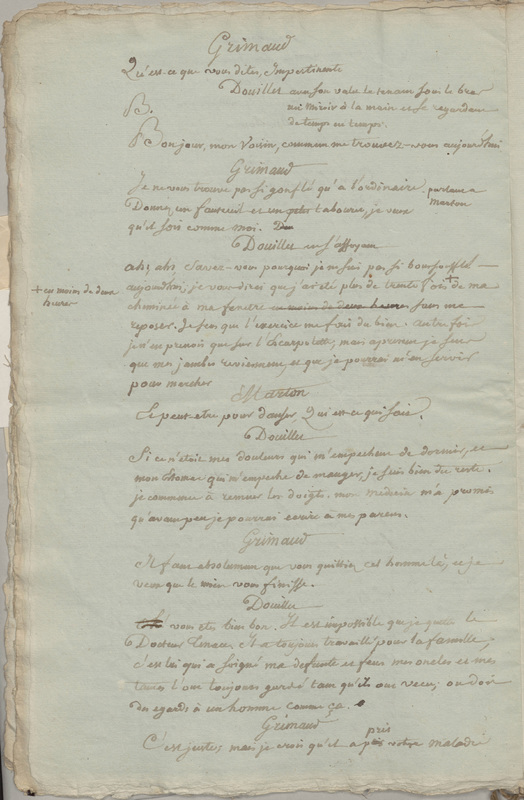 Grimaud
Qu'est-ce que vous dites, Impertinente
Douillet avec son valet le tenant sous le bras
un miroir à la main et se regardant
de temps en temps.
B.
Bonjour, mon Voisin, comment me trouvez-vous aujourd'hui
Grimaud
Je ne vous trouve pas si gonflé qu'à l'ordinaire. parlant a
Marton
Donnez un fauteuil et un petit tabouret, je veux
qu'il soit comme moi.
Douillet en s'asseyant
ah, ah, Savez-vous pourquoi je ne suis pas si boursoufflé
aujourdhui, je vous dirai que j'ai été plus de trente fois + de ma
+ en moins de deux
heures
cheminée à ma fenetre en moins de deux heures sans me
reposer. Je sens que l'exercice me fait du bien. autrefois
je n'en prenois que sur l'Escarpolette, mais apresent je sens
que mes jambes reviennent et que je pourrai m'en servir
pour marcher
Marton
Et peut etre pour danser, Qui est-ce qui sait.
Douillet
Si ce n'étoit mes douleurs qui m'empechent de dormir, et
mon Estomac qui m'empeche de manger, je suis bien du reste.
je commence à remuer les doigts. mon medecin m'a promis
qu'avant peu je pourrai ecrire à mes parens.
Grimaud
Il faut absolument que vous quittiez cet homme là, et je
veux que le mien vous finisse.
Douillet
vous etes bien bon. Il est impossible que je quitte le
Docteur Tenace. Il a toujours travaillé pour la famille,
c'est lui qui a soigné ma defunte et feus mes oncles et mes
tantes l'ont toujours gardé tant qu'ils ont vecu; on doit
des egards à un homme comme ça.
Grimaud
C'est juste, mais je crois qu'il a pris votre maladie